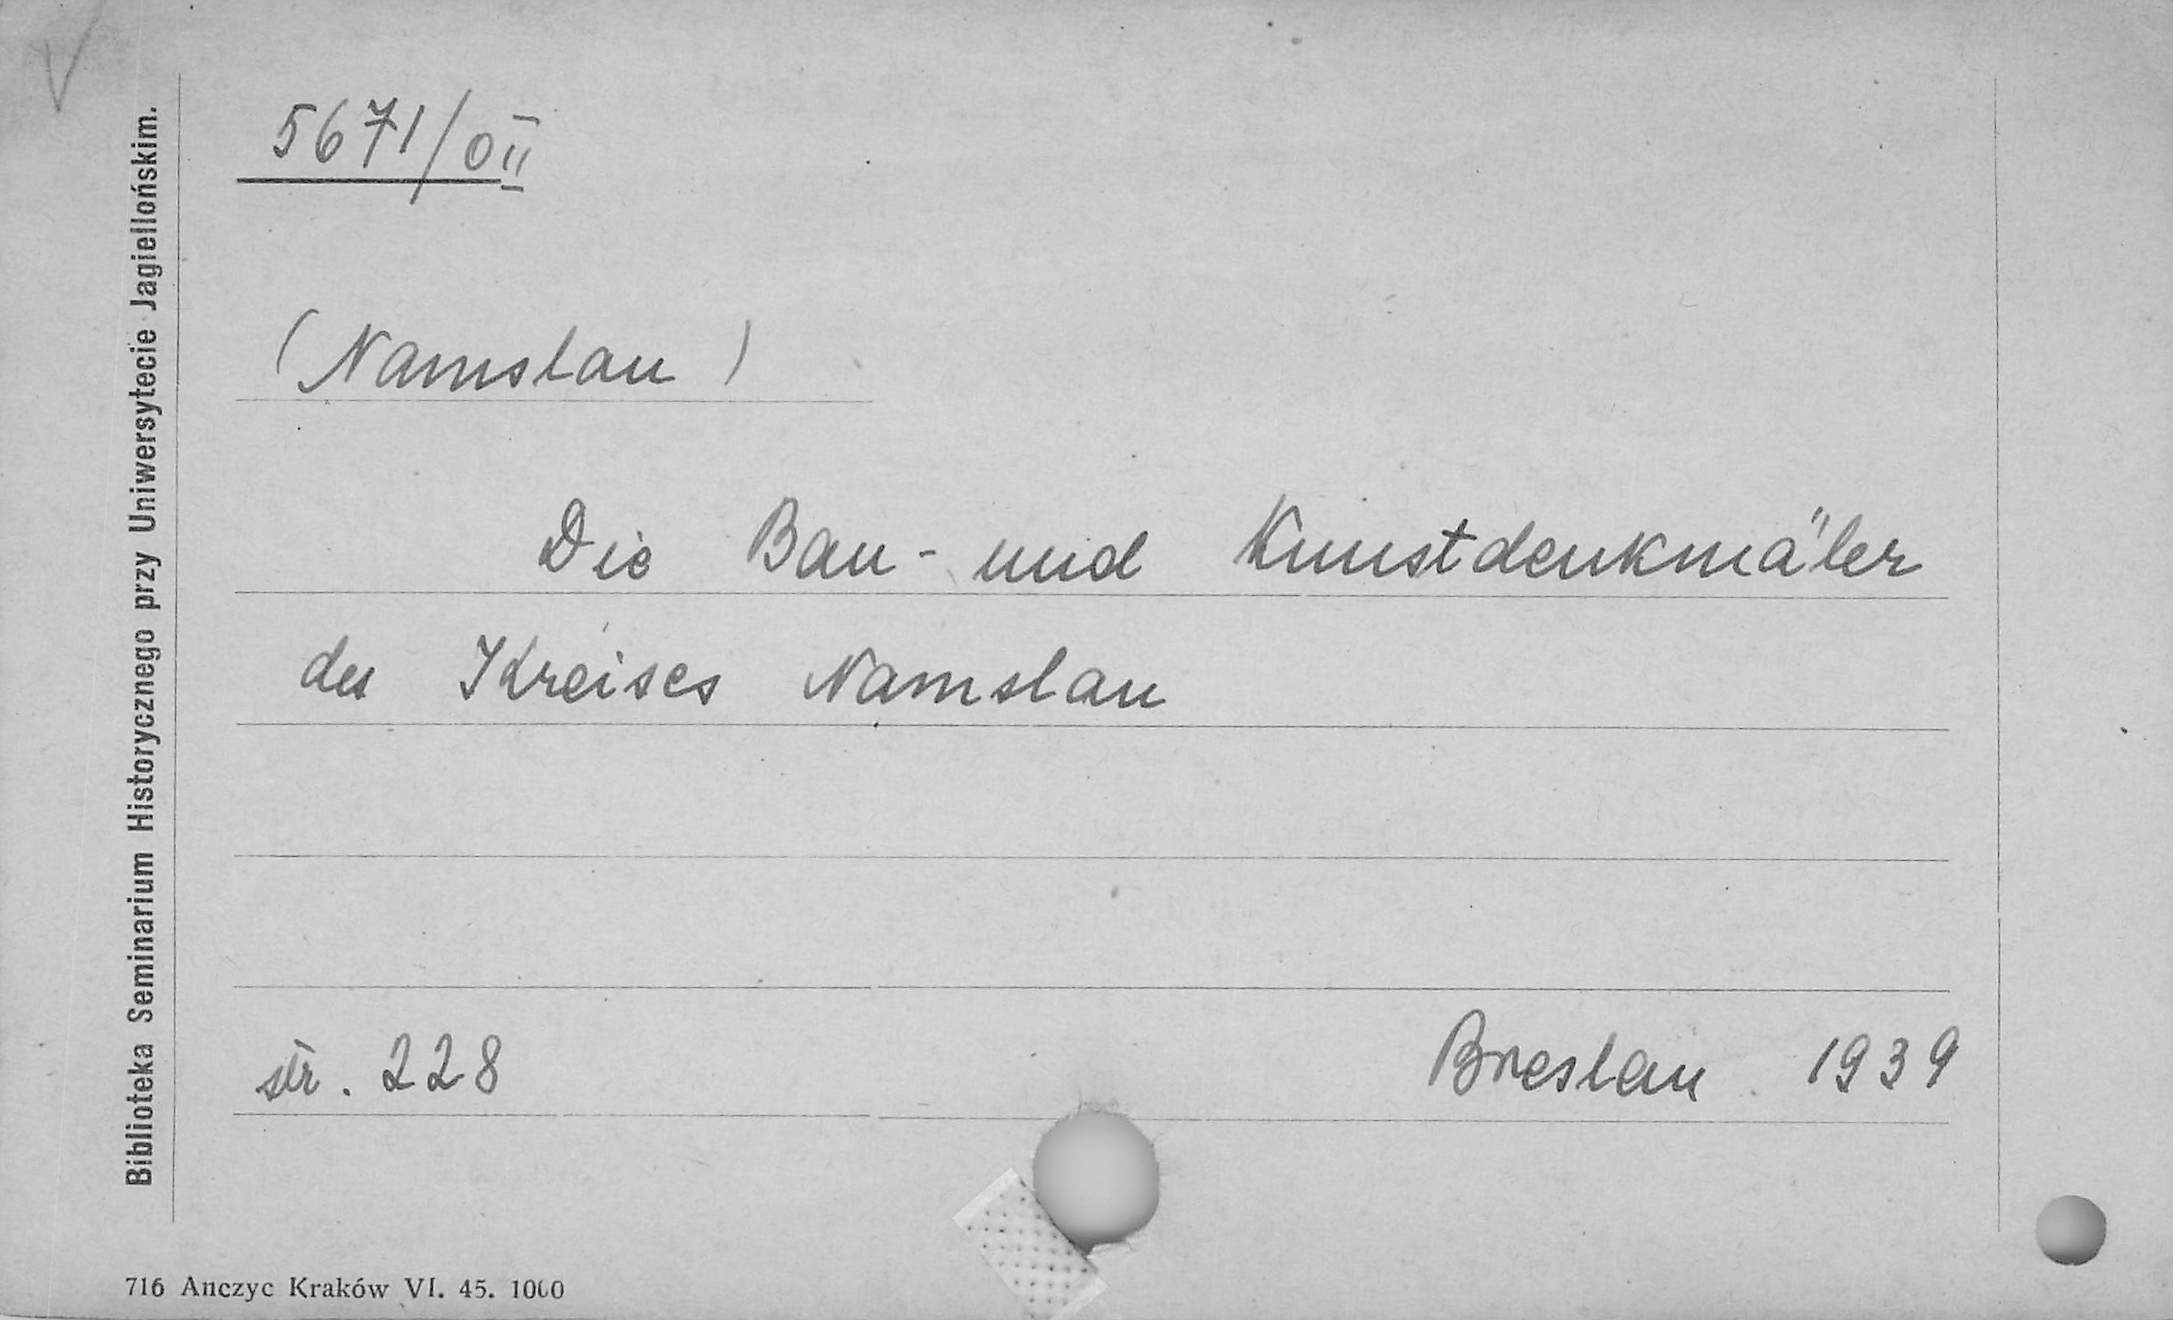 5671/0 II
(Namslau)
Die Bau- und Kunstdenkmäler
des Kreises Namslau
str. 228 Breslau 1939
Biblioteka Seminarium Historycznego przy Uniwersytecie Jagiellońskim.
716 Anczyc Kraków VI. 45. 1000